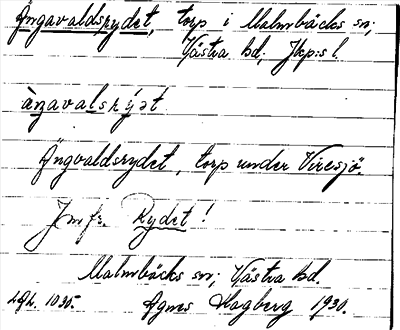 Ängavaldsrydet, torp i Malmbäcks sn;
Västra hd; Jkp:s l.
àŋavalsrýət
Ängvaldsrydet, torp under Viresjö.
Jmfr. Rydet!
Malmbäcks sn; Västra hd.
Agnes Hagberg 1930.